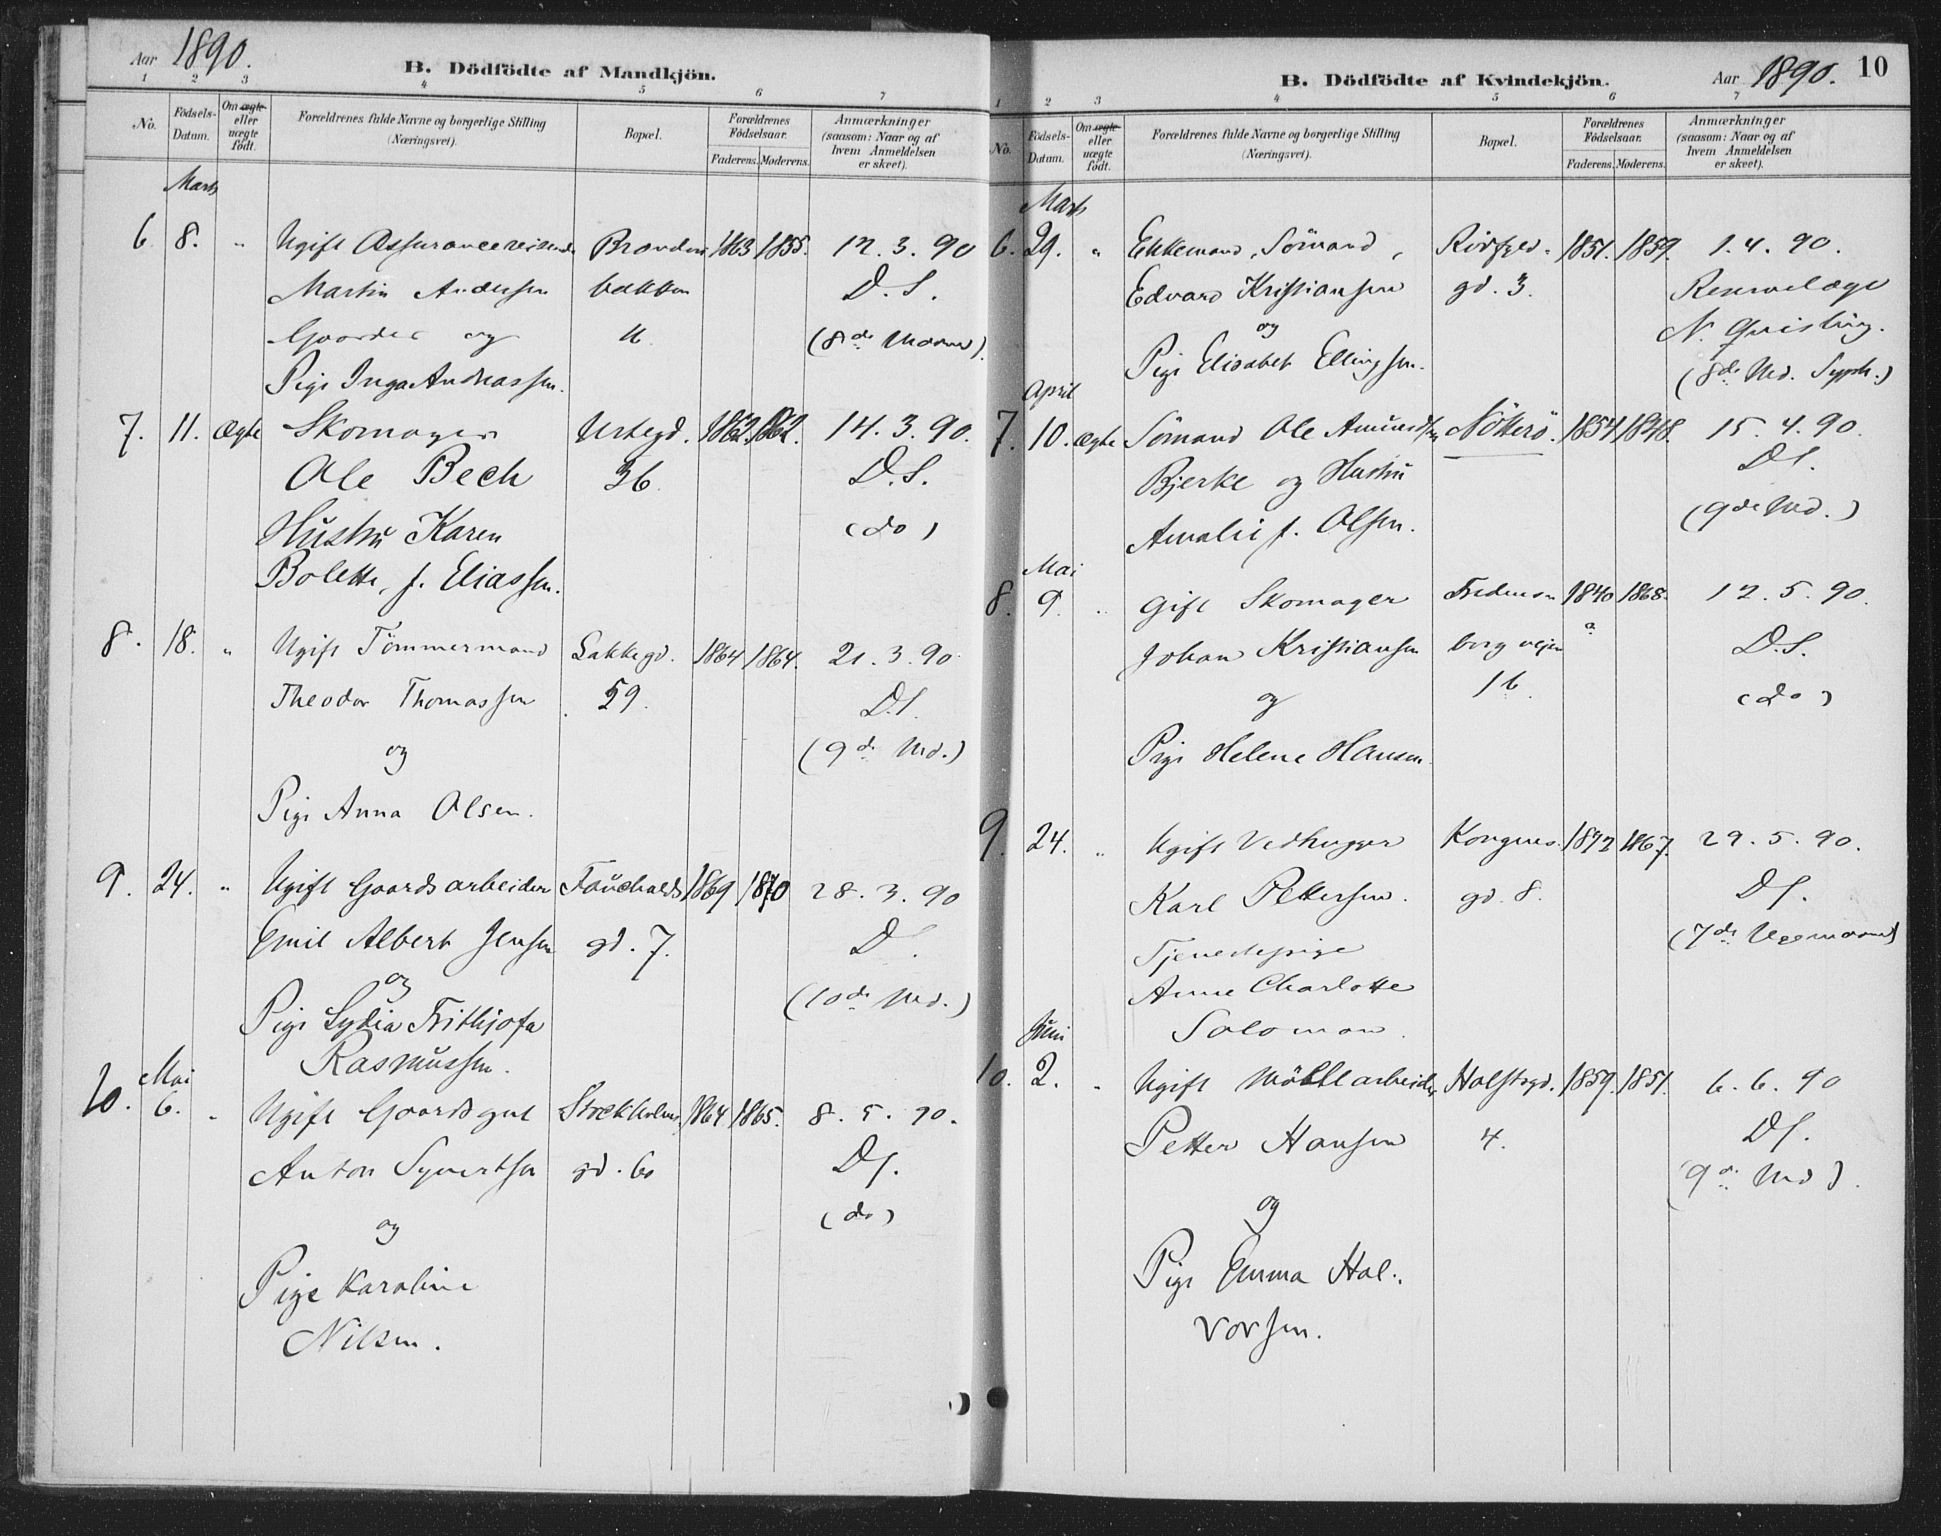 Aar 1890.
B. Dödfödte af Mandkjön.
1 2 3 4 5 6 7
No.
Födsels-Datum.
Om ægte eller uægte födt.
Forældrenes fulde Navne og borgerlige Stilling (Næringsvei).
Bopæl.
Forældrenes Födselsaar.
Faderens. Moderens.
Anmærkninger (saasom: Naar og af hvem Anmeldelsen er skeet).
Marts
6. 8. " Ugift Assurancereisende 1863 1855. 12. 3. 90
Martin Andersen bakken D. S.
Gaarder og (8de Maaned).
Pige Inga Andreassen.
7. 11. ægte Skomager Urtegd. 1862. 1862. 14. 3. 90.
Ole Bech 36 D.S.
Hustru Karen (do)
Bolette, f. Eliassen.
8. 18. " Ugift Tömmermand Lakkegd. 1864 1864. 21. 3. 90
Theodor Thomassen 59. D.S.
og (9de Md.)
Pige Anna Olsen.
9. 24. " Ugift Gaardsarbeider Fauchalds 1869 1870 28. 3. 90
Emil Albert Jensen gd. 7. D.
og (10de Md.)
Pige Lydia Frithjofa
Rasmussen.
Mai
10. 6. " Ugift Gaardsgut Stockholms 1864 1865. 8. 5. 90.
Anton Syvertsen gd. DS.
og (do)
Pige Karoline
Nilsen.
B. Dödfödte af Kvindekjön.
Aar 1890. 10
1 2 3 4 5 6 7
No.
Födsels-Datum.
Om ægte eller uægte födt.
Forældrenes fulde Navne og borgerlige Stilling (Næringsvei).
Bopæl.
Forældrenes Födselsaar.
Faderens. Moderens.
Anmærkninger (saasom: Naar og af hvem Anmeldelsen er skeet).
Marts
6. 29. " Enkemand, Sömand, 1851. 1859. 1. 4. 90.
Edvard Kristiansen gd. 3. Reservelæge
og N. Quisling.
Pige Elisabet Ellingsen. (8de Md. Syph.)
April
7. 10. ægte Sömand Ole Amundsen Nötterö. 1854 1848. 15. 4. 90.
Bjerke og Hustru DS.
Amalie f. Olsen. (9de Md.)
Mai
8. 9. " Gift Skomager Fredens- 1840 1868. 12. 5. 90.
Johan Kristiansen borgveien D.S.
og 16. (do)
Pige Helene Hansen.
9. 24. " Ugift Vedhugger Kongens. 1872 1867. 29. 5. 90.
Karl Pettersen. gd. 8. DS.
Tjenestepige (7de Maaned)
Anne Charlotte
Salomon.
Juni
10. 2. " Ugift Möllearbeider Holstsgd. 1859. 1851. 6. 6. 90
Petter Hansen 4. DS.
og (9de Md).
Pige Emma Hal-
vorsen.